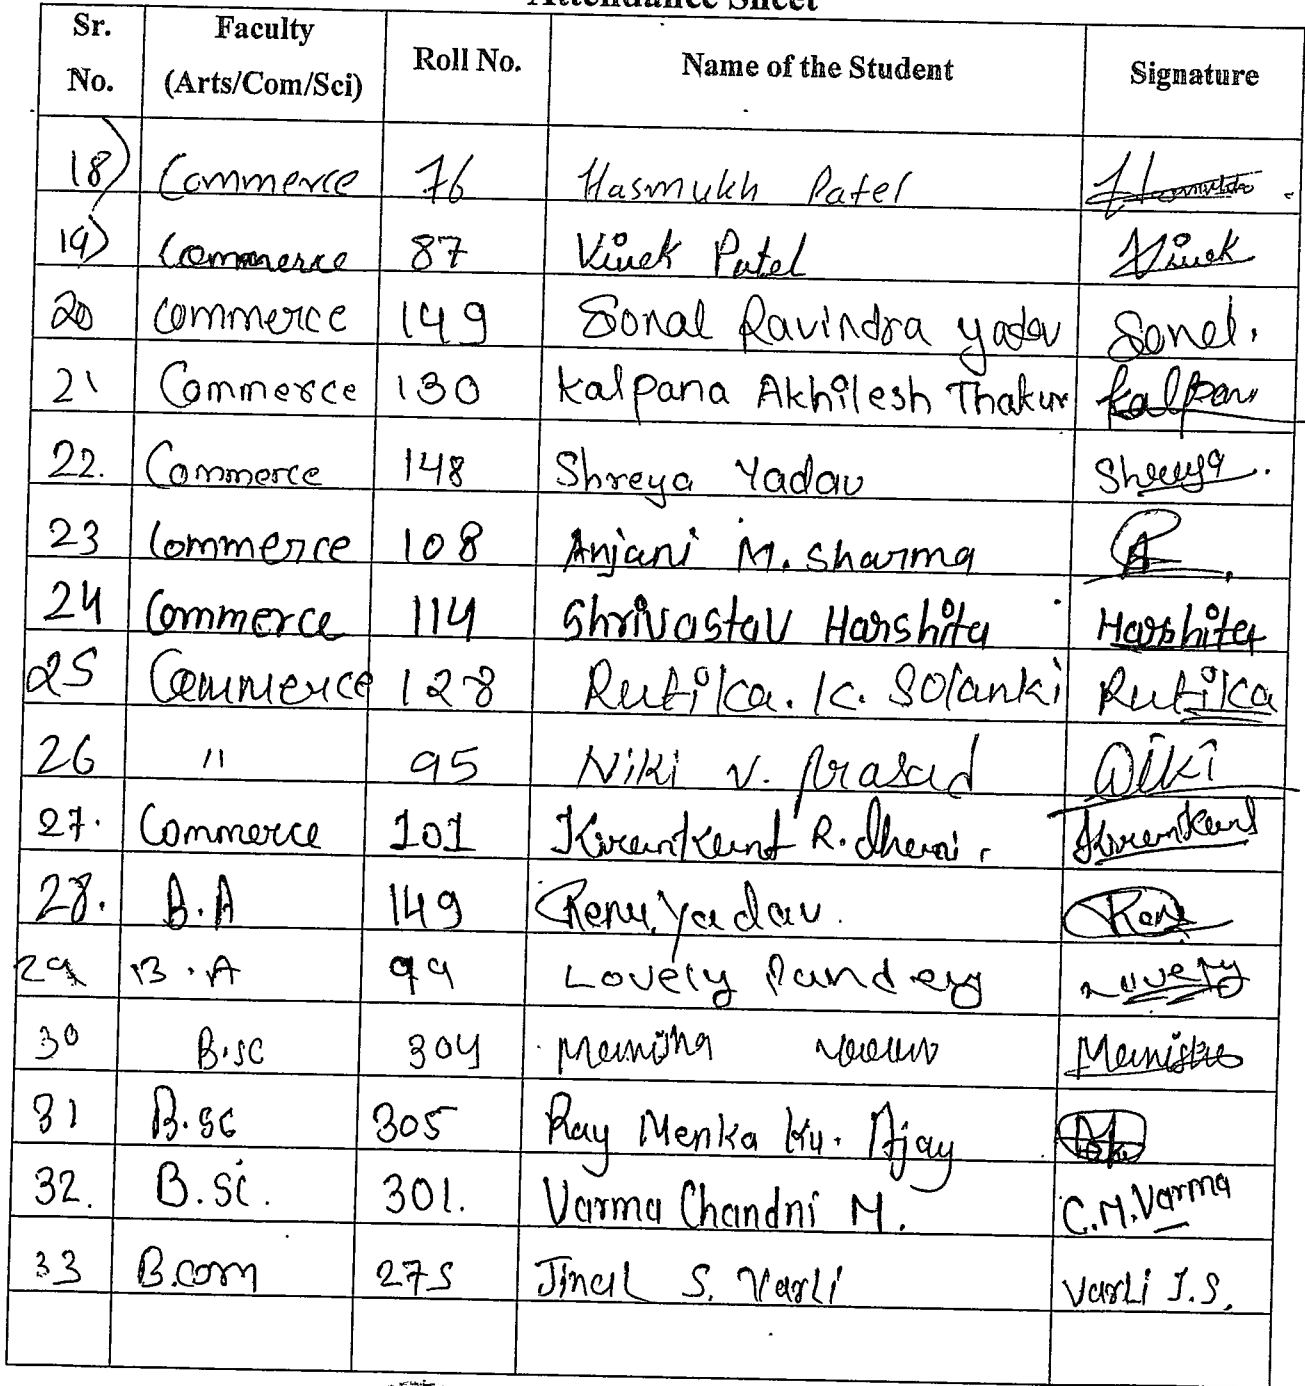 Attendance Sheet
Sr. No. Faculty (Arts/Com/Sci) Roll No. Name of the Student Signature
18) Commerce 76 Hasmukh Patel
19) Commerce 87 Vivek Patel Vivek
20 Commerce 149 Sonal Ravindra yadav Sonal.
21 Commerce 130 Kalpana Akhilesh Thakur Kalpan
22. Commerce 148 Shreya Yadav Shreya.
23 Commerce 108 Anjani M. Sharma
24 Commerce 114 Shrivastav Harshita Harshita
25 Commerce 128 Rutika. K. Solanki Rutika
26 " 95 Niki V. Prasad Niki
27. Commerce 101 R.
28. B.A 149 Renu Yadav. Renu
29 B.A 99 Lovely Pandey Lovely
30 B.sc 304 Manisha Manisha
31 B.sc 305 Ray Menka Ku. Ajay
32. B.sc. 301. Varma Chandni M. C.M.Varma
33 B.com 275 Jinal S. Varli Varli J.S.